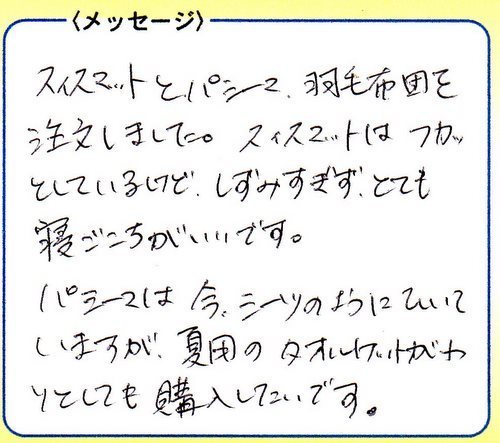 〈メッセージ〉
スイスマットとパシーマ、羽毛布団を
注文しました。スイスマットはフカッ
としているけど、しずみすぎず、とても
寝ごこちがいいです。
パシーマは今、シーツのようにひいて
いますが、夏用のタオルケットがわ
りとしても購入したいです。